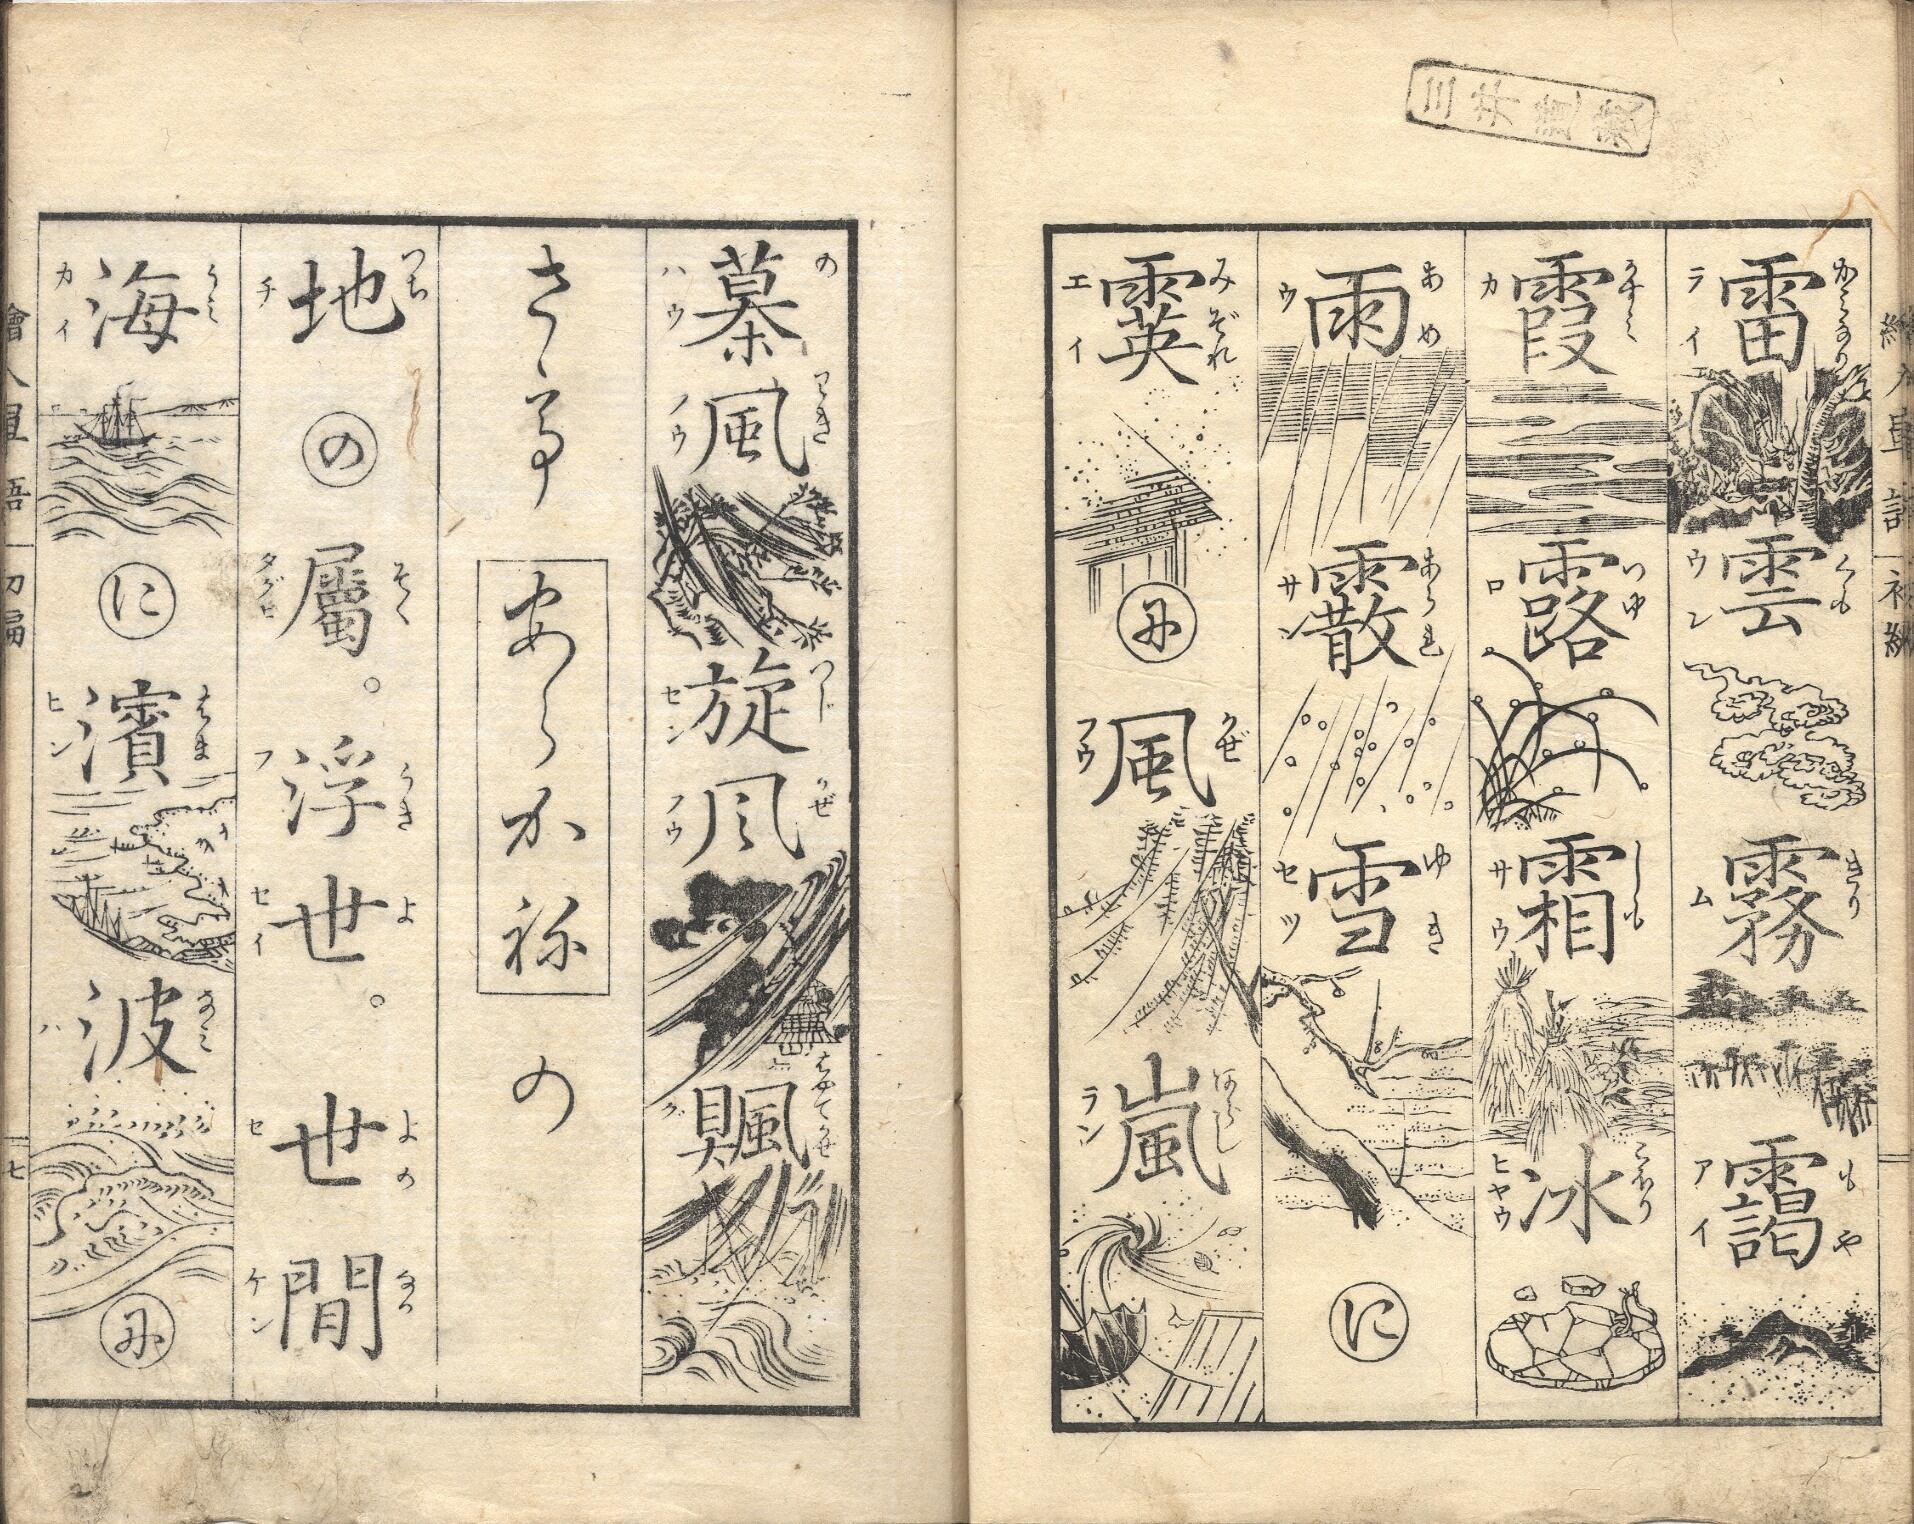 雷 かみなり ライ 雲 くも ウン 霧 きり ム 靄 もや アイ
霞 かすみ カ 露 つゆ ロ 霜 しも サウ 冰 こほり ヒヤウ
雨 あめ ウ 霰 あられ サン 雪 ゆき セツ に
霙 みぞれ エイ 風 かぜ フウ 嵐 あらし ラン
の わき ハウ フウ 風 旋風 つじ かぜ セン フウ 颶 はやてかぜ グ
さて あらかねの
地 つち チ の 屬 ぞく タグヒ 。 浮世 うき よ フ セイ 。 世間 よの なか セ ケン
海 うみ カイ に 濱 はま ヒン 波 なみ ハ
初編
七